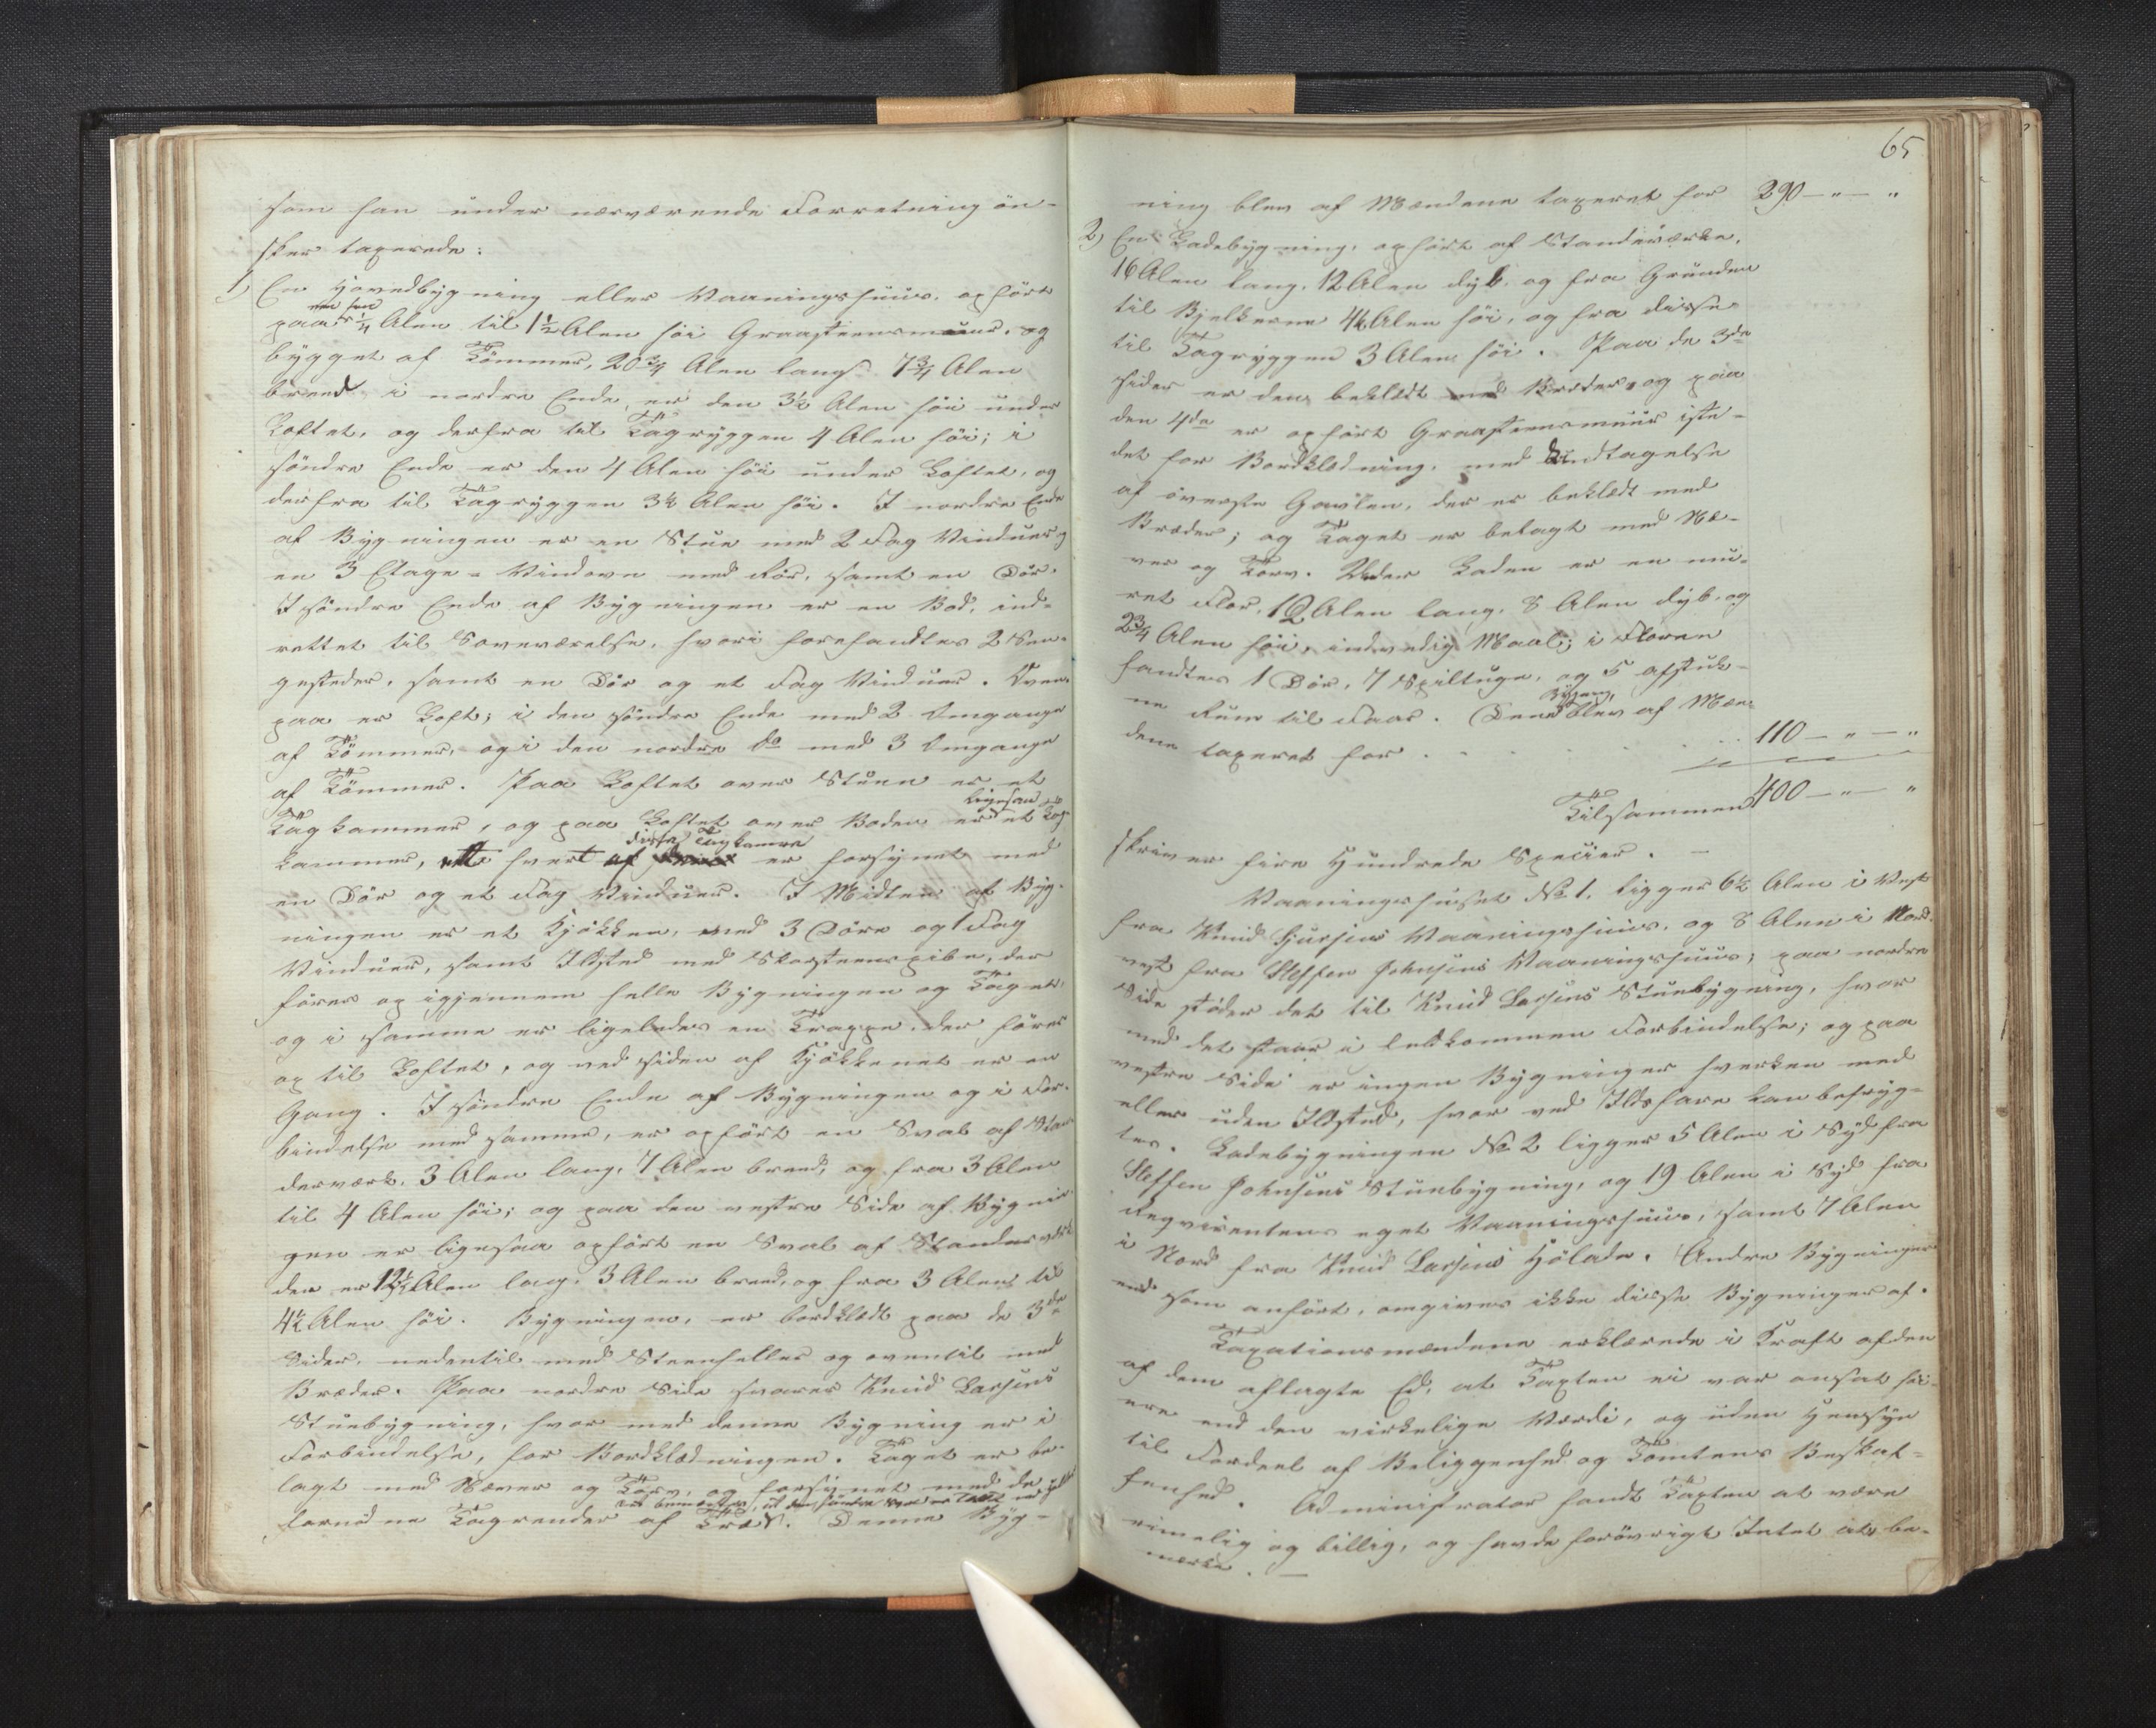 som han under nærværende Forretning ön-
sker taxerede:
1) En Hovedbygning eller Vaaningshuus, opfört
paa en fra 1/4 Alen til 1 1/2 Alen höi Graasteensmuur, og
bygget af Tömmer, 20 3/4 Alen lang, 7 3/4 Alen
breed i nordre Ende, er den 3 1/2 Alen höi under
Loftet, og derfra til Tagryggen 4 Alen höi; i
söndre Ende er den 4 Alen höi under Loftet, og
derfra til Tagryggen 3 1/2 Alen höi. I nordre Ende
af Bygningen er en Stue med 2 Fag Vinduer og
en 3 Etage-Vindovn med Rör, samt en Dör.
I söndre Ende af Bygningen er en Bod, ind-
rettet til Soveværelse, hvori forefandtes 2 Sen-
gesteder, samt en Dör og et Fag Vinduer. Oven-
paa er Loft; i den söndre Ende med 2 Omgange
af Tömmer, og i den nordre do med 3 Omgange
af Tömmer. Paa Loftet over Stuen er et
Tagkammer, og paa Loftet over Boden er ligesaa et Tag-
kammer, hvert af disse Tagkamre er forsynet med
en Dör og et Fag Vinduer. I Midten af Byg-
ningen er et Kjökken, med 3 Döre og 1 Fag
Vinduer, samt Ildsted med Skorsteenspibe, der
förer op igjennem hele Bygningen og Taget,
og i samme er ligeledes en Trappe, der förer
op til Loftet, og ved siden af Kjökkenet er en
Gang. I söndre Ende af Bygningen og i For-
bindelse med samme, er opfört en Sval af Stan-
derværk, 3 Alen lang, 7 Alen breed, og fra 3 Alen
til 4 Alen höi; og paa den vestre Side af Bygnin-
gen er ligesaa opfört en Sval af Standerværk
den er 12 1/2 Alen lang, 3 Alen breed, og fra 3 Alen til
4 1/2 Alen höi. Bygningen, er bordklædt paa de 3de
Sider, nedentil med Steenheller og oventil med
Bræder. Paa nordre Side svarer Knud Larsens
Stuebygning, hvor med denne Bygning er i
Forbindelse, for Bordklædningen. Taget er be-
lagt med Næver og Törv, og forsynet med de
bemærkes, at den söndre Sval er tækt med
fornödne Tagrender af Træ. Denne Byg-
65
ning blev af Mændene taxeret for 290 — " — "
2) En Ladebygning, opfört af Standerværk,
16 Alen lang, 12 Alen dyb, og fra Grunden
til Bjelkerne 4 1/2 Alen höi, og fra disse
til Tagryggen 3 Alen höi. Paa de 3de
sider er den beklædt med Bræder, og paa
den 4de er opfört Graasteensmuur iste-
det for Bordklædning, med Undtagelse
af överste Gavlen, der er beklædt med
Bræder; og Taget er belagt med Næ-
ver og Törv. Under Laden er en mu-
ret Flor, 12 Alen lang, 8 Alen dyb, og
2 3/4 Alen höi, indvendig Maal; i Floren
fandtes 1 Dör, 7 Spiltuge, og 5 afstuk-
ne Rum til Faar. Denne Bygning blev af Mæn-
dene taxeret for . . . . . . . 110 — " — "
Tilsammen 400 — " — "
skriver fire Hundrede Specier. —
Vaaningshuset No 1. ligger 6 1/2 Alen i Vest
fra Knud Sjursens Vaaningshuus, og 8 Alen i Nord-
vest fra Steffen Johnsens Vaaningshuus; paa nordre
Side stöder det til Knud Larsens Stuebygning, hvor
med det staar i fuldkommen Forbindelse; og paa
vestre Side er ingen Bygninger hverken med
eller uden Ildsted, hvor ved Ildsfare kan befryg-
tes. Ladebygningen No 2 ligger 5 Alen i Syd fra
Steffen Johnsens Stuebygning, og 19 Alen i Syd fra
Reqvirentens eget Vaaningshuus, samt 7 Alen
i Nord fra Knud Larsens Hölade. Andre Bygninger
end som anfört, omgives ikke disse Bygninger af.
Taxationsmændene erklærede i Kraft af den
af dem aflagte Ed, at Taxten ei var ansat höi-
ere end den virkelige Værdi, og uden Hensyn
til Fordeel af Beliggenhed og Tomtens Beskaf-
fenhed. Administrator fandt Taxten at være
rimelig og billig, og havde forövrigt Intet at be-
mærke. —